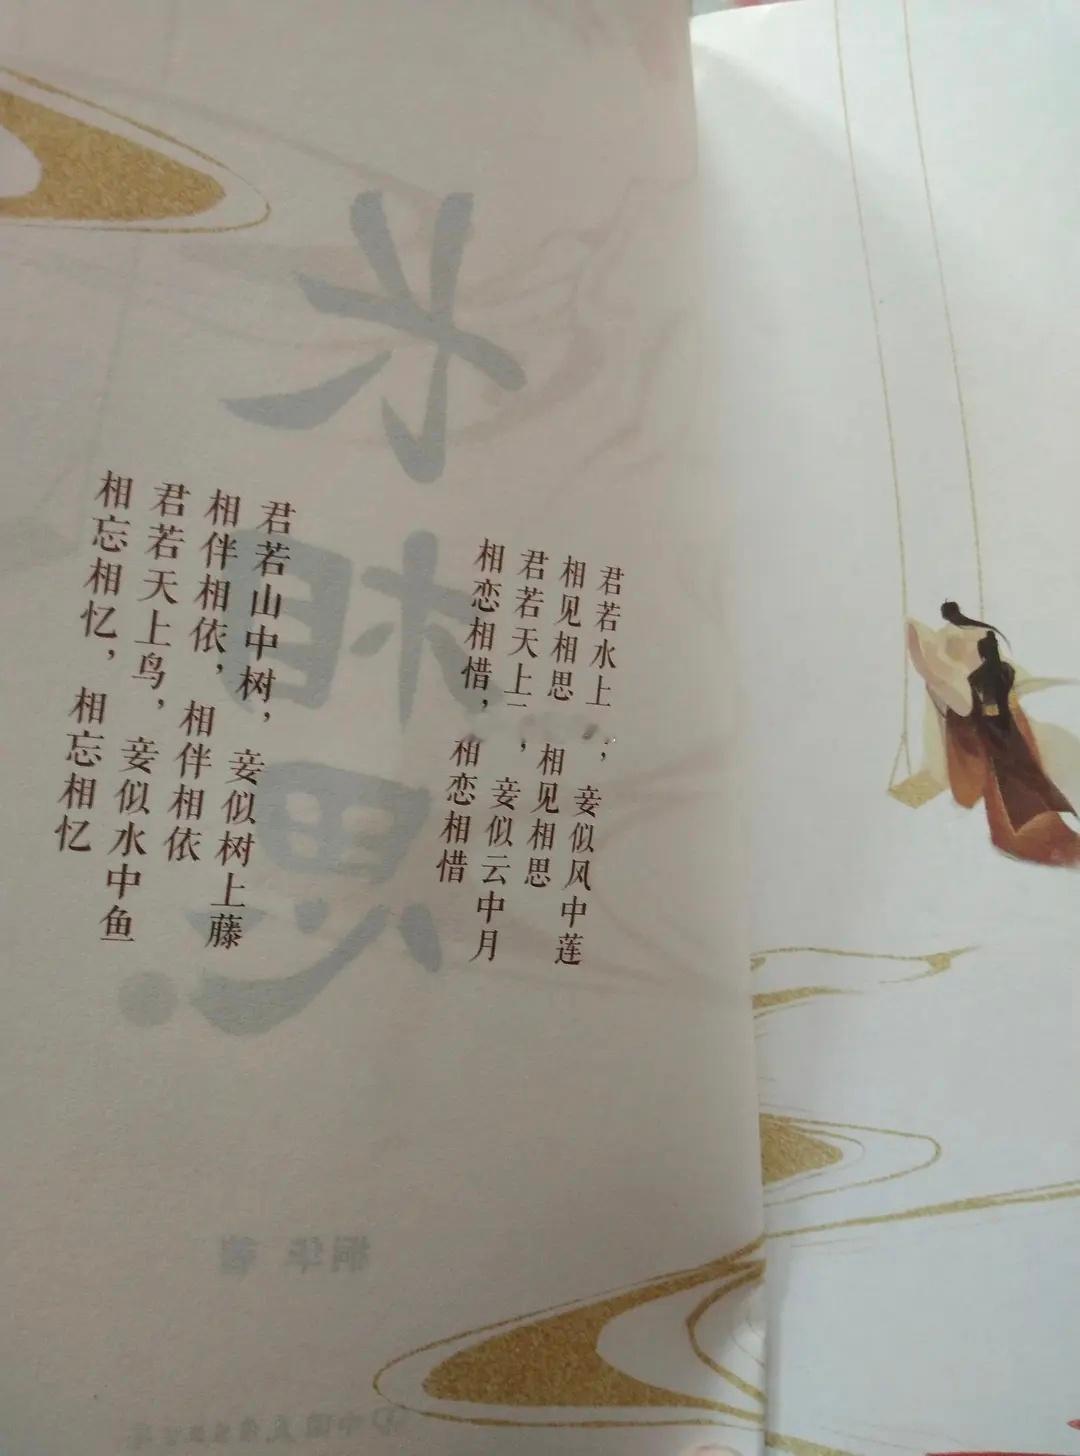 君若水上，妾似风中莲
相见相思 相见相思
君若天上，妾似云中月
相恋相惜，相恋相惜
君若山中树，妾似树上藤
相伴相依，相伴相依
君若天上鸟，妾似水中鱼
相忘相忆，相忘相忆
长相思
桐华 著